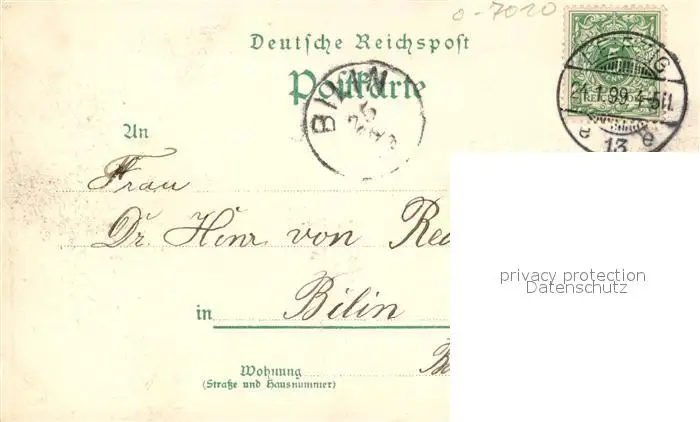 0-7020
Deutsche Reichspost
Postkarte
BILIN
21.1.99.4-5N.
13
e e
An
Frau
Dr. Heinr von Re
in Bilin
privacy protection
Datenschutz
Wohnung
(Straße und Hausnummer)